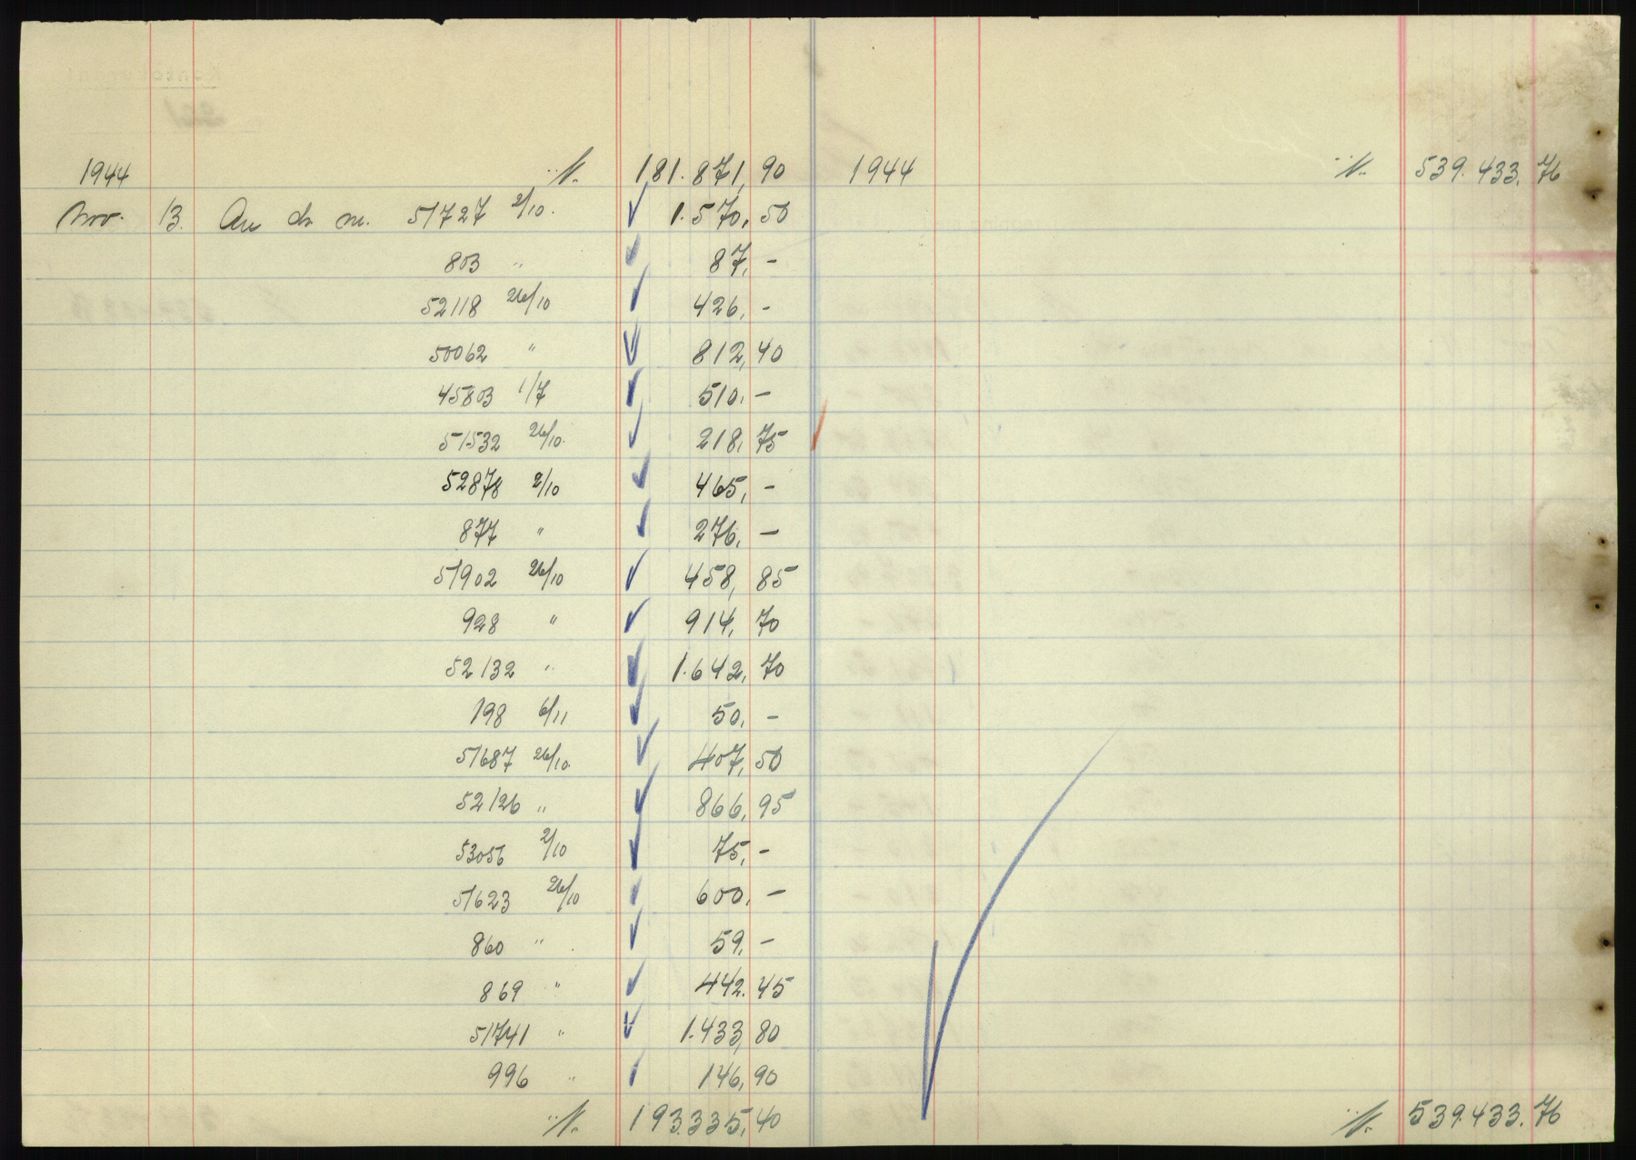 1944 ·/. 181.871,90 1944 ·/. 539.433.76
Nov. 13. An ds nr. 51727 2/10. 1.570,50
803 " 87,-
52118 26/10 426,-
50062 " 812,40
45803 1/7 510.-
51532 26/10. 218,75
52878 2/10 465,-
877 " 276,-
51902 26/10 458,85
928 " 914,70
52132 " 1.642,70
198 6/11 50,-
51687 26/10. 407,50
52126 " 866,95
53056 2/10 75,-
51623 26/10 600,-
860 " 59,-
869 " 442.45
51741 " 1.433,80
996 " 146,90
·/. 193.335,40 ·/. 539.433.76